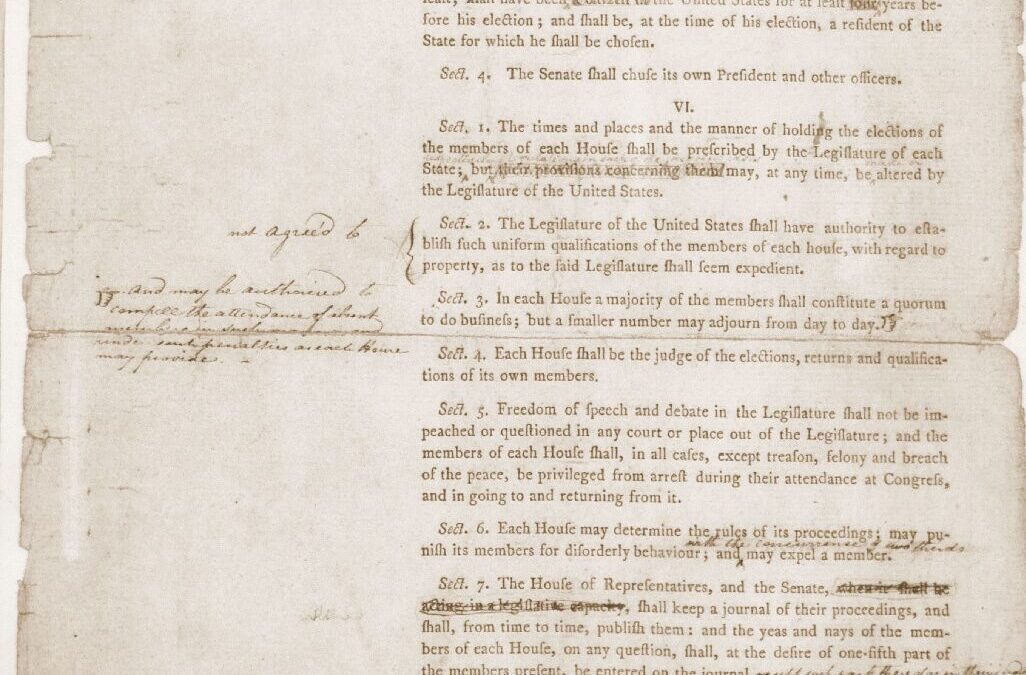 leaſt, ſhall have been a citizen in the United States for at leaſt four years be-
fore his election; and ſhall be, at the time of his election, a reſident of the
State for which he ſhall be choſen.
Sect. 4. The Senate ſhall chuſe its own Preſident and other officers.
VI.
Sect. 1. The times and places and the manner of holding the elections of
the members of each Houſe ſhall be preſcribed by the Legiſlature of each
State; but their proviſions concerning them may, at any time, be altered by
the Legiſlature of the United States.
not agreed to
Sect. 2. The Legiſlature of the United States ſhall have authority to eſta-
bliſh ſuch uniform qualifications of the members of each houſe, with regard to
property, as to the ſaid Legiſlature ſhall ſeem expedient.
and may be authorised to
compell the attendance of absent
members in such
under penalties as each House
may provide.
Sect. 3. In each Houſe a majority of the members ſhall conſtitute a quorum
to do buſineſs; but a ſmaller number may adjourn from day to day.
Sect. 4. Each Houſe ſhall be the judge of the elections, returns and qualifica-
tions of its own members.
Sect. 5. Freedom of ſpeech and debate in the Legiſlature ſhall not be im-
peached or queſtioned in any court or place out of the Legiſlature; and the
members of each Houſe ſhall, in all caſes, except treaſon, felony and breach
of the peace, be privileged from arreſt during their attendance at Congreſs,
and in going to and returning from it.
Sect. 6. Each Houſe may determine the rules of its proceedings; may pu-
with the concurrence of two thirds
niſh its members for diſorderly behaviour; and may expel a member.
Sect. 7. The Houſe of Repreſentatives, and the Senate, when it ſhall be
acting in a legiſlative capacity, ſhall keep a journal of their proceedings, and
ſhall, from time to time, publiſh them: and the yeas and nays of the mem-
bers of each Houſe, on any queſtion, ſhall, at the deſire of one-fifth part of
the members preſent, be entered on the journal